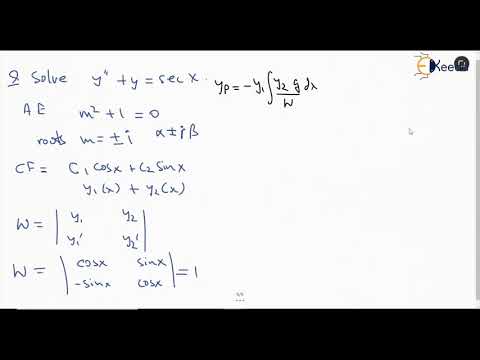 Q Solve y" + y = sec x.
yp = -y₁ ∫ y₂ g / W dx
AE m² + 1 = 0
roots m = ± i α ± iβ
CF = C₁ cosx + C₂ sinx
y₁(x) + y₂(x)
W = | y₁ y₂ |
| y₁' y₂' |
W = | cosx sinx | = 1
| -sinx cosx |